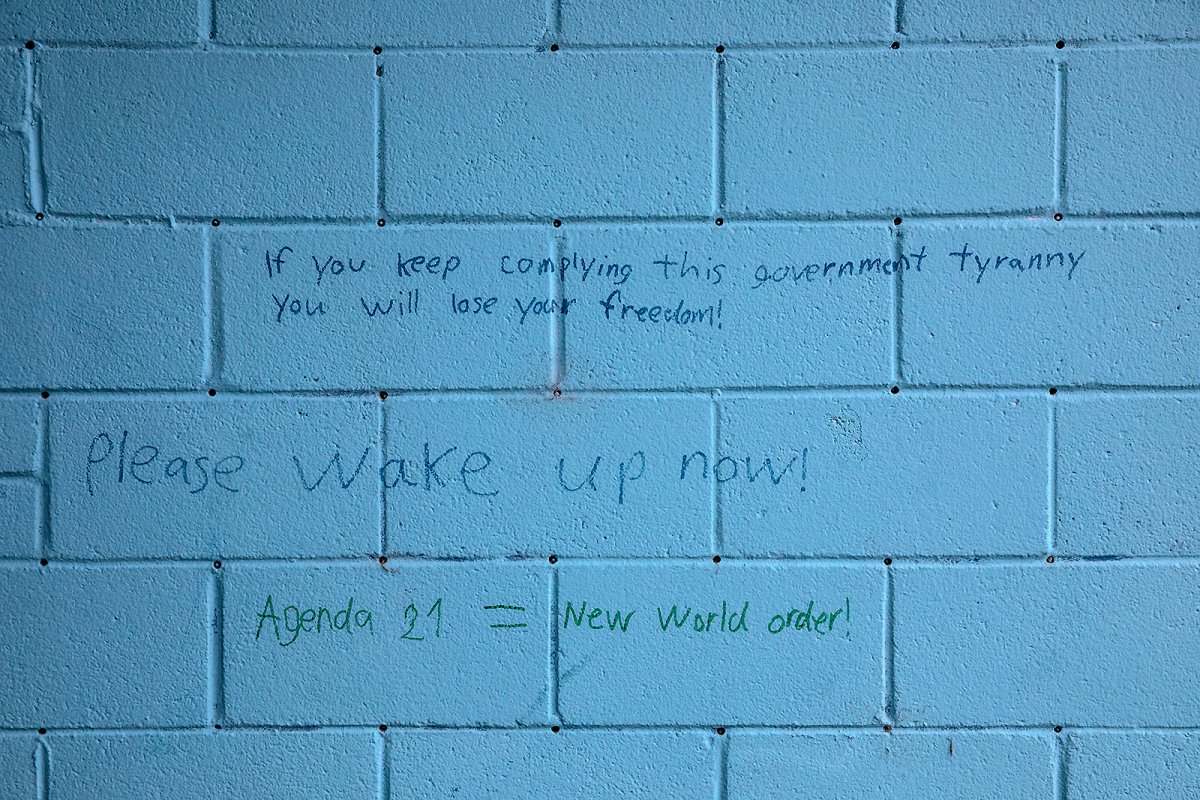 If you keep complying this government tyranny
you will lose your freedom!
Please Wake up now!
Agenda 21 = New World order!